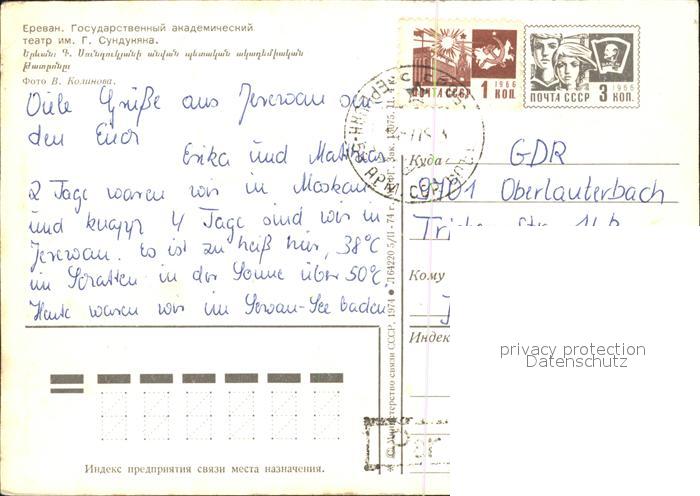 Ереван. Государственный академический
театр им. Г. Сундукяна.
Երևան: Գ. Սունդուկյանի անվան պետական ակադեմիական
թատրոնը
Фото В. Колинова.
Viele Grüße aus Jerewan
den Eurer
Erika und Mathias
2 Tage waren wir in Moskau
und knapp 4 Tage sind wir in
Jerewan. Es ist zu heiß hier, 38°C
im Schatten in der Sonne über 50°C
Heute waren wir im Sewan-See baden
ПОЧТА СССР 1 КОП. 1966
ПОЧТА СССР 3 КОП. 1966
Куда
GDR
9701 Oberlauterbach
Кому
Индекс
© Министерство связи СССР, 1974
Индекс предприятия связи места назначения.
privacy protection
Datenschutz